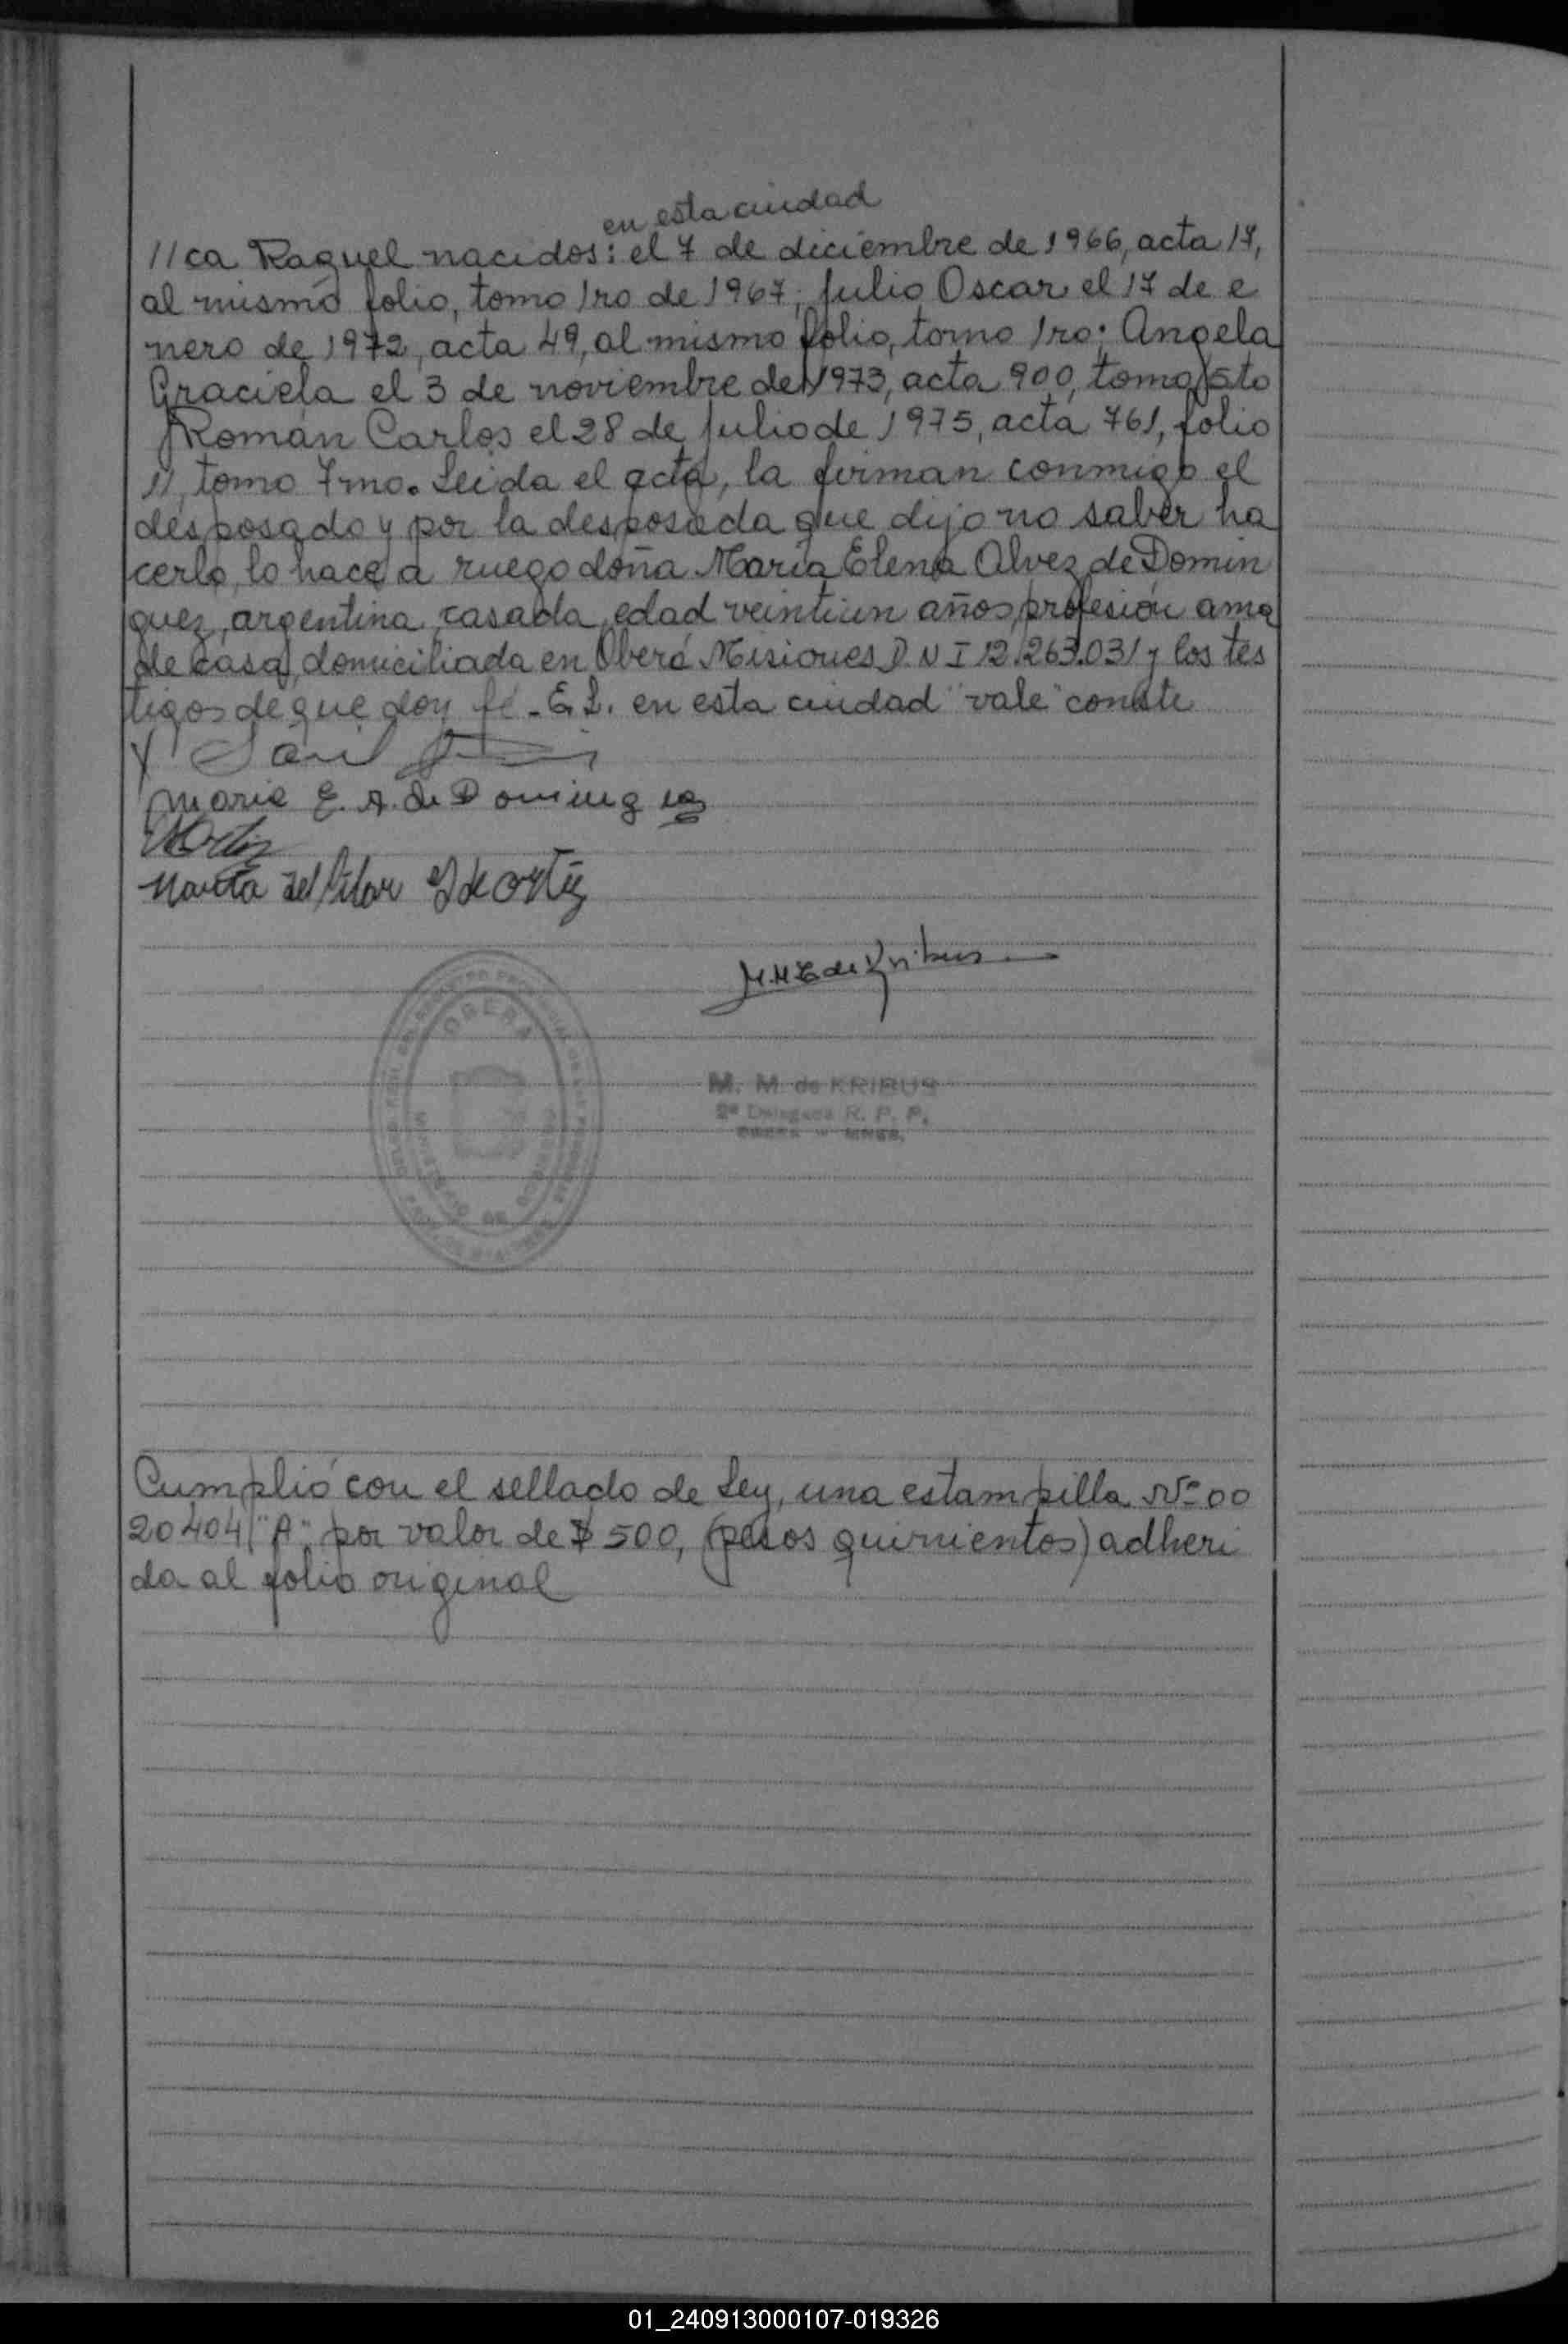 en esta ciudad
//ca Raquel nacidos: el 7 de diciembre de 1966, acta 17,
al mismo folio, tomo 1ro de 1967; Julio Oscar el 17 de e
nero de 1972, acta 49, al mismo folio, tomo 1ro; Angela
Graciela el 3 de noviembre de 1973, acta 900, tomo 5to
Román Carlos el 28 de Julio de 1975, acta 761, folio
11, tomo 7mo. Leida el acta, la firman conmigo el
desposado y por la desposada que dijo no saber ha
cerlo, lo hace a ruego doña María Elena Alvez de Domin
guez, argentina, casada, edad veintiun años, profesión ama
de casa, domiciliada en Oberá Misiones D N I 12.263.031 y los tes
tigos de que doy fé - E. L. en esta ciudad "vale" conste
Maria E. A. de Dominguez
Marta del Pilar de Ortiz
M. M. de Kribus
OBERA
M. M. de KRIBUS
2ª Delegada R. P. P.
OBERA - MNES.
Cumplió con el sellado de Ley, una estampilla Nº 00
20404 "A" por valor de $ 500, (pesos quinientos) adheri
da al folio original
01_240913000107-019326